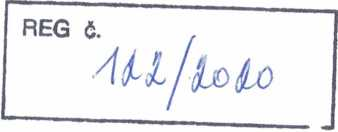 REG č.
122/2020